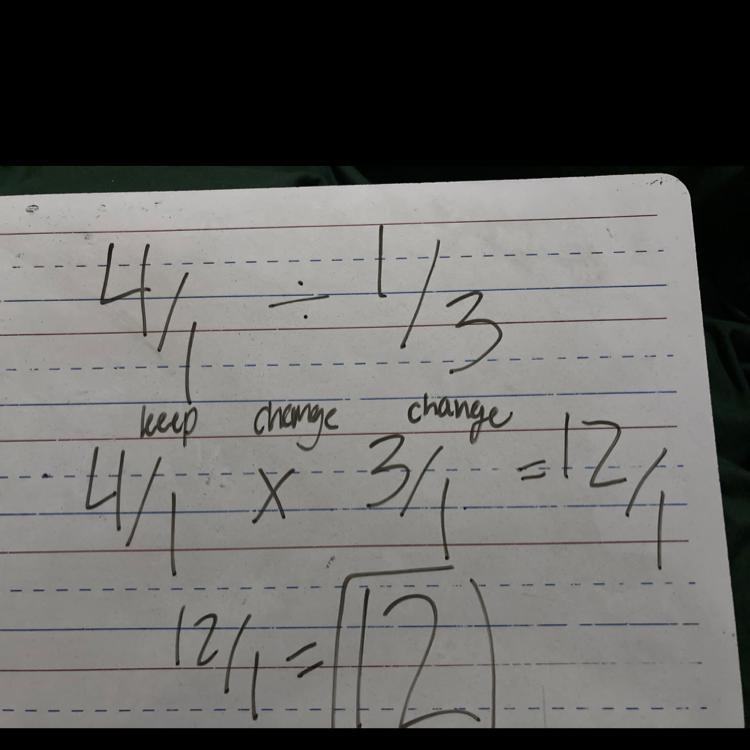 4/1 ÷ 1/3
keep change change
4/1 x 3/1 = 12/1
12/1 = 12